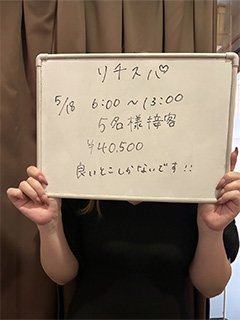 リチスパ♡
5/18 6:00～13:00
5名様接客
¥40.500
良いとこしかないです!!